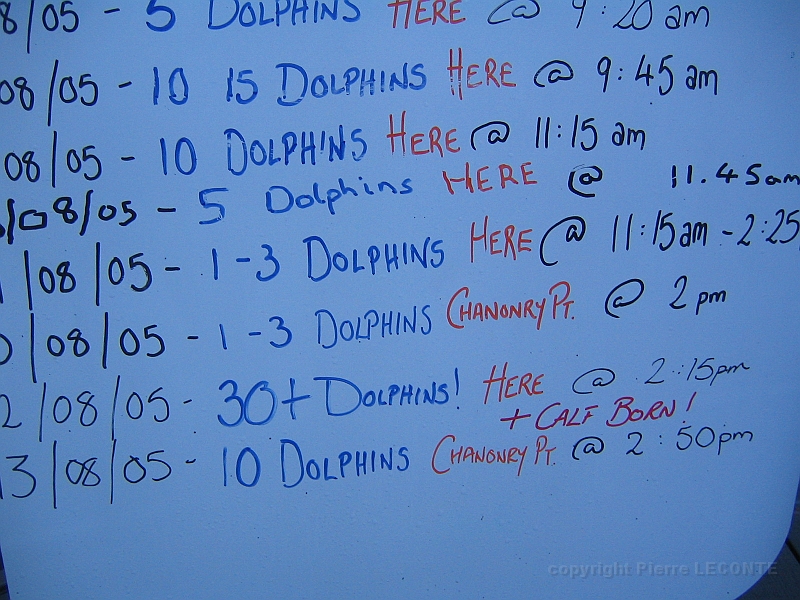 8/05 - 5 DOLPHINS HERE @ 9:20 am
08/05 - 10 15 DOLPHINS HERE @ 9:45 am
08/05 - 10 DOLPHINS HERE @ 11:15 am
/08/05 - 5 Dolphins HERE @ 11.45am
/08/05 - 1-3 DOLPHINS HERE @ 11:15am - 2:25
/08/05 - 1-3 DOLPHINS CHANONRY PT. @ 2pm
2/08/05 - 30+ DOLPHINS! HERE @ 2:15pm
+ CALF BORN!
3/08/05 - 10 DOLPHINS CHANONRY PT. @ 2:50pm
copyright Pierre LECONTE